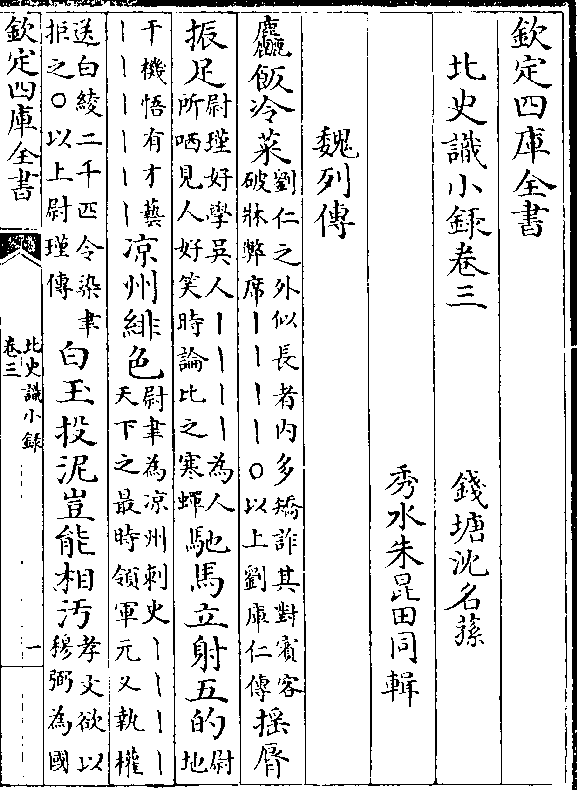 欽定四庫全書
北史識小録卷三　錢塘沈名蓀
秀水朱昆田同輯
魏列傳
麤飯冷菜
劉仁之外似長者内多矯詐其對賓客
破牀弊席丨丨丨丨○以上劉庫仁傳
揺脣
振足
尉瑾好學吳人丨丨丨丨為人
所哂見人好笑時論比之寒蟬
馳馬立射五的
尉
地
干機悟有才藝
丨丨丨丨丨丨
凉州緋色
尉聿為凉州刺史丨丨丨丨
天下之最時領軍元乂執權
送白綾二千匹令染聿
拒之○以上尉瑾傳
白玉投泥豈能相汚
孝文欲以
穆弼為國
欽定四庫全書
北史識小録
卷三
一